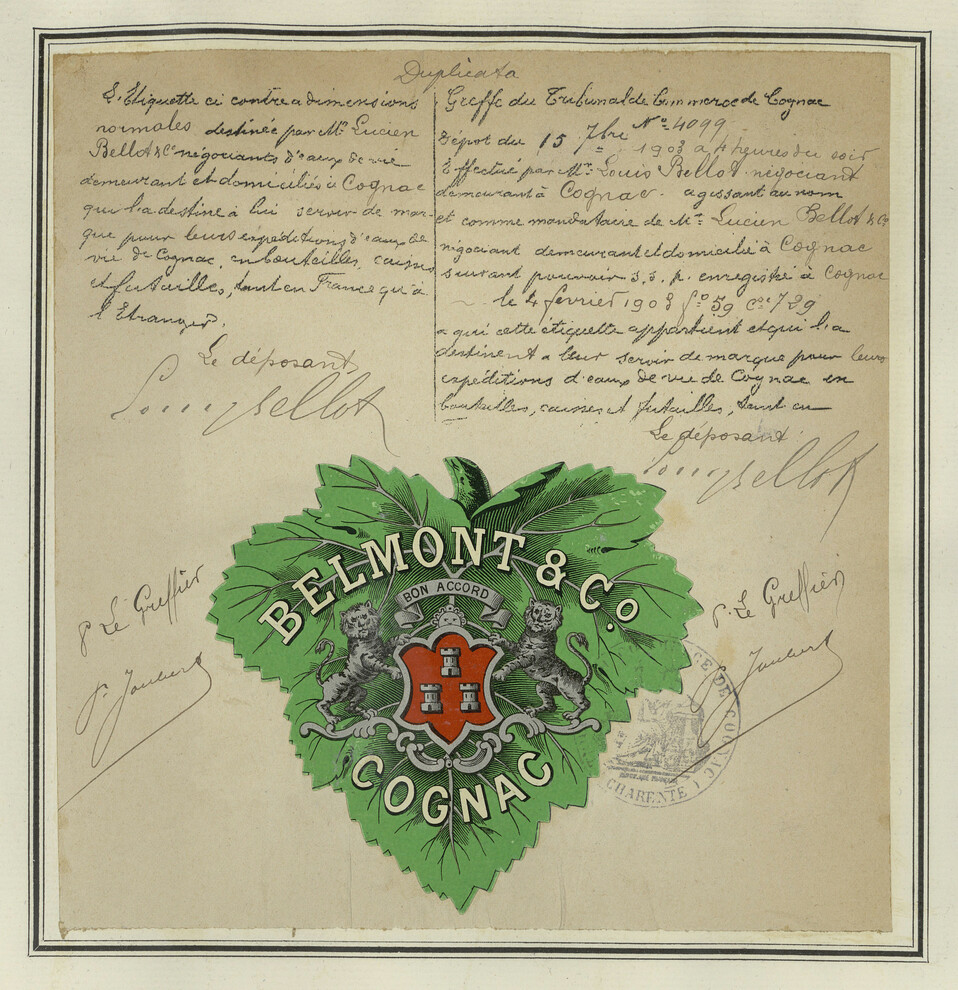 Duplicata
L'Etiquette ci contre a dimensions
normales destinée par Mr. Lucien
Bellot & Cie négociants d'eaux de vie
demeurant et domiciliés à Cognac
qui l'a destine à lui servir de mar-
que pour leurs expéditions d'eaux de
vie de Cognac, en bouteilles, caisses
et futailles, tant en France qu'à
l'Etranger.
Le déposant
Louis Bellot
Greffe du Tribunal de Commerce de Cognac
No 4099
Dépot du 15 7bre 1903 à 4 heures du soir
Effectué par Mr. Louis Bellot négociant
demeurant à Cognac - agissant au nom
et comme mandataire de Mr. Lucien Bellot & Cie
négociant demeurant et domicilié à Cognac
suivant pouvoir s.s. p. enregistré à Cognac
le 4 février 1903 fo 59 ce 729
a qui cette étiquette appartient et qui l'a
destinent a leur servir de marque pour leurs
expéditions d'eaux de vie de Cognac en
bouteilles, caisses et futailles, tant en
Le déposant
Louis Bellot
BELMONT & Co.
BON ACCORD
COGNAC
P. Le Greffier
P. Joubert
P. Le Greffier
Joubert
DE COGNAC
CHARENTE